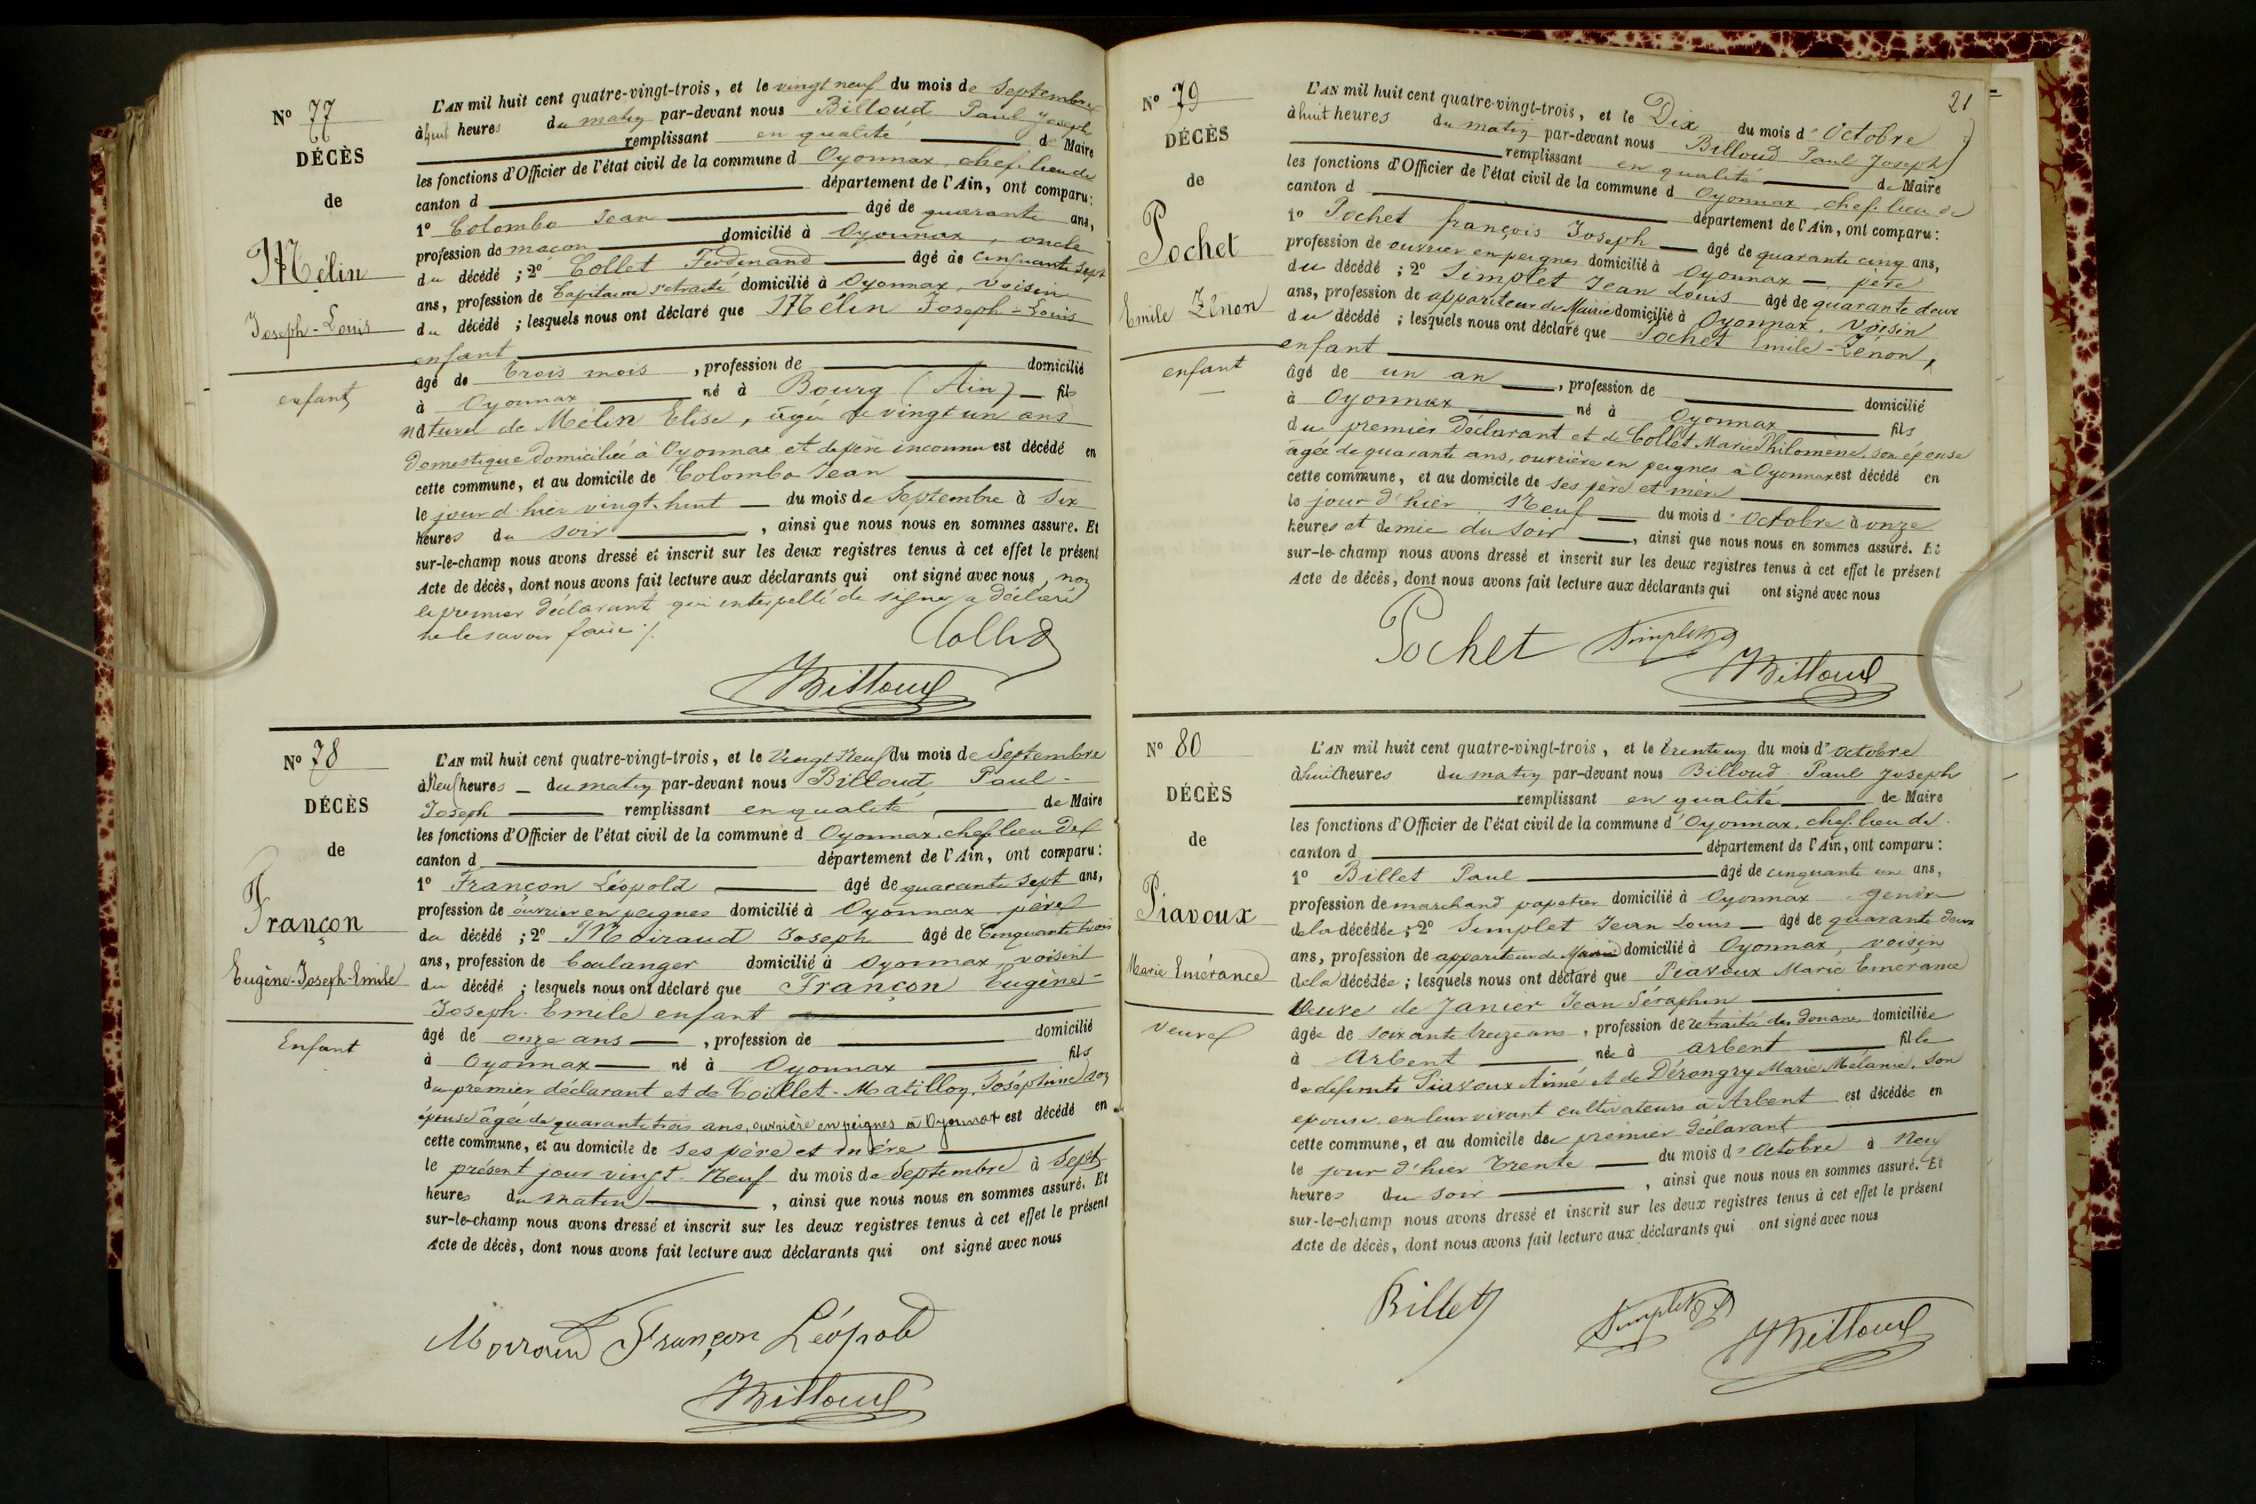 N° 77
DÉCÈS
de
Mélin
Joseph-Louis
enfant
L'AN mil huit cent quatre-vingt-trois, et le vingt neuf du mois de Septembre
à huit heures du matin par-devant nous Billoud Paul Joseph
remplissant en qualité de Maire
les fonctions d'Officier de l'état civil de la commune d Oyonnax, chef-lieu de
canton d département de l'Ain, ont comparu:
1° Colombo Jean âgé de quarante ans,
profession de maçon domicilié à Oyonnax, oncle
du décédé; 2° Collet Ferdinand âgé de cinquante sept
ans, profession de Capitaine retraité domicilié à Oyonnax, voisin
du décédé; lesquels nous ont déclaré que Mélin Joseph-Louis
enfant
âgé de trois mois, profession de domicilié
à Oyonnax né à Bourg (Ain) fils
naturel de Mélin Elise, âgée de vingt un ans
domestique domiciliée à Oyonnax et de père inconnu est décédé en
cette commune, et au domicile de Colombo Jean
le jour d'hier vingt-huit du mois de Septembre à Six
heures du soir, ainsi que nous nous en sommes assuré. Et
sur-le-champ nous avons dressé et inscrit sur les deux registres tenus à cet effet le présent
Acte de décès, dont nous avons fait lecture aux déclarants qui ont signé avec nous, non
le premier déclarant qui interpellé de signer a déclaré
ne le savoir faire ./.
Collet
Billoud
N° 78
DÉCÈS
de
Françon
Eugène-Joseph-Emile
Enfant
L'AN mil huit cent quatre-vingt-trois, et le Vingt Neuf du mois de Septembre
à Neuf heures du matin par-devant nous Billoud Paul-
Joseph remplissant en qualité de Maire
les fonctions d'Officier de l'état civil de la commune d Oyonnax, chef lieu de
canton d département de l'Ain, ont comparu:
1° Françon Léopold âgé de quarante sept ans,
profession de ouvrier en peignes domicilié à Oyonnax, père
du décédé; 2° Moiraud Joseph âgé de Cinquante trois
ans, profession de boulanger domicilié à Oyonnax, voisin
du décédé; lesquels nous ont déclaré que Françon Eugène-
Joseph-Emile enfant
âgé de onze ans, profession de domicilié
à Oyonnax né à Oyonnax fils
du premier déclarant et de Coillet-Matillon, Joséphine son
épouse âgée de quarante trois ans, ouvrière en peignes à Oyonnax est décédé en
cette commune, et au domicile de ses père et mère
le présent jour vingt-Neuf du mois de Septembre à Sept
heures du matin, ainsi que nous nous en sommes assuré. Et
sur-le-champ nous avons dressé et inscrit sur les deux registres tenus à cet effet le présent
Acte de décès, dont nous avons fait lecture aux déclarants qui ont signé avec nous
Moiraud Françon Léopold
Billoud
21
N° 79
DÉCÈS
de
Pochet
Emile Zénon
enfant
L'AN mil huit cent quatre-vingt-trois, et le Dix du mois d'Octobre
à huit heures du matin par-devant nous Billoud Paul Joseph
remplissant en qualité de Maire
les fonctions d'Officier de l'état civil de la commune d Oyonnax, chef-lieu de
canton d département de l'Ain, ont comparu:
1° Pochet françois Joseph âgé de quarante cinq ans,
profession de ouvrier en peignes domicilié à Oyonnax, père
du décédé; 2° Simplet Jean Louis âgé de quarante deux
ans, profession de appariteur de Mairie domicilié à Oyonnax, voisin
du décédé; lesquels nous ont déclaré que Pochet Emile-Zénon,
enfant
âgé de un an, profession de domicilié
à Oyonnax né à Oyonnax fils
du premier Déclarant et de Collet Marie Philomène, son épouse
âgée de quarante ans, ouvrière en peignes à Oyonnax est décédé en
cette commune, et au domicile de ses père et mère
le jour d'hier Neuf du mois d'Octobre à onze
heures et demie du soir, ainsi que nous nous en sommes assuré. Et
sur-le-champ nous avons dressé et inscrit sur les deux registres tenus à cet effet le présent
Acte de décès, dont nous avons fait lecture aux déclarants qui ont signé avec nous
Pochet Simplet
Billoud
N° 80
DÉCÈS
de
Piavoux
Marie Emérance
veuve
L'AN mil huit cent quatre-vingt-trois, et le trente un du mois d'octobre
à huit heures du matin par-devant nous Billoud Paul Joseph
remplissant en qualité de Maire
les fonctions d'Officier de l'état civil de la commune d'Oyonnax, chef-lieu de
canton d département de l'Ain, ont comparu:
1° Billet Paul âgé de cinquante un ans,
profession de marchand papetier domicilié à Oyonnax gendre
de la décédée; 2° Simplet Jean Louis âgé de quarante deux
ans, profession de appariteur de Mairie domicilié à Oyonnax, voisin
de la décédée; lesquels nous ont déclaré que Piavoux Marie Emérance
Veuve de Janier Jean Séraphin
âgée de soixante treize ans, profession de retraitée des douanes domiciliée
à Arbent née à arbent fille
de défunts Piavoux Aimé et de Dérongry Marie Mélanie, son
épouse en leur vivant cultivateurs à Arbent est décédée en
cette commune, et au domicile du premier déclarant
le jour d'hier trente du mois d'Octobre à Neuf
heures du soir, ainsi que nous nous en sommes assuré. Et
sur-le-champ nous avons dressé et inscrit sur les deux registres tenus à cet effet le présent
Acte de décès, dont nous avons fait lecture aux déclarants qui ont signé avec nous
Billet Simplet
Billoud